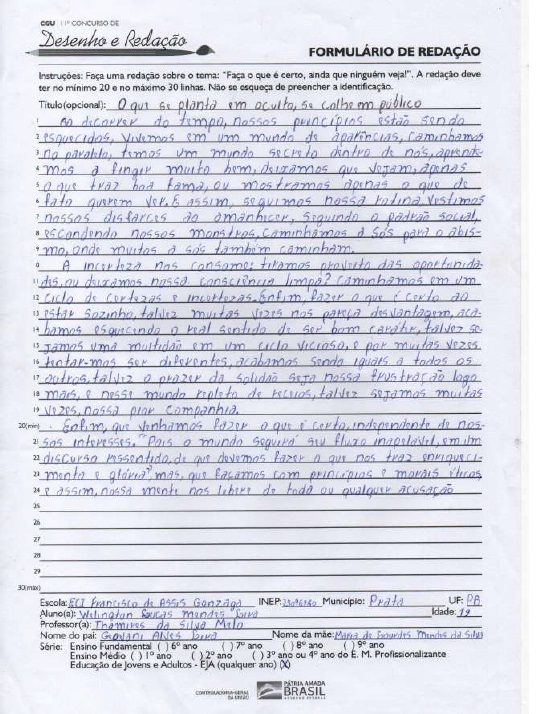 CGU | 11º CONCURSO DE
Desenho e Redação
FORMULÁRIO DE REDAÇÃO
Instruções: Faça uma redação sobre o tema: "Faça o que é certo, ainda que ninguém veja!". A redação deve
ter no mínimo 20 e no máximo 30 linhas. Não se esqueça de preencher a identificação.
Título(opcional): O que se planta em oculto, se colhe em público
1 Ao decorrer do tempo, nossos princípios estão sendo
2 esquecidos, vivemos em um mundo de aparências, caminhamos
3 no paralelo, temos um mundo secreto dentro de nós, aprende-
4 mos a fingir muito bem, deixamos que vejam, apenas
5 o que traz boa fama, ou mostramos apenas o que de
6 fato querem ver. E assim, seguimos nossa rotina, vestimos
7 nossos disfarces ao amanhecer, seguindo o padrão social,
8 escondendo nossos monstros, caminhamos à sós para o abis-
9 mo, onde muitos à sós também caminham.
A incerteza nos consome: tiramos proveito das oportunida-
11 des, ou deixamos nossa consciência limpa? Caminhamos em um
12 ciclo de certezas e incertezas. Enfim, fazer o que é certo ao
13 estar sozinho, talvez muitas vezes nos pareça desvantagem, aca-
14 bamos esquecendo o real sentido de ser bom caráter, talvez se-
15 jamos uma multidão em um ciclo vicioso, e por muitas vezes
16 tentar-mos ser diferentes, acabamos sendo iguais a todos os
17 outros, talvez o prazer da solidão seja nossa frustração logo
18 mais, e nesse mundo repleto de receios, talvez sejamos muitas
19 vezes, nossa pior companhia.
20(min) Enfim, que venhamos fazer o que é certo, independente de nos-
21 sos interesses. "Pois o mundo seguirá seu fluxo inapelável, em um
22 discurso ressentido, de que devemos fazer o que nos traz enriqueci-
23 mento e glória", mas, que façamos com princípios e morais éticos
24 e assim, nossa mente nos libere de toda ou qualquer acusação
25
26
27
28
29
30(max)
Escola: ECI Francisco de Assis Gonzaga INEP: Município: Prata UF: PB
Aluno(a): Welington Mendes Silva Idade: 19
Professor(a): Thamires da Silva Melo
Nome do pai: Geovani Alves Silva Nome da mãe: Maria de Lourdes Mendes da Silva
Série: Ensino Fundamental ( ) 6º ano ( ) 7º ano ( ) 8º ano ( ) 9º ano
Ensino Médio ( ) 1º ano ( ) 2º ano ( ) 3º ano ou 4º ano do E. M. Profissionalizante
Educação de Jovens e Adultos - EJA (qualquer ano) (X)
CONTROLADORIA-GERAL
DA UNIÃO
PÁTRIA AMADA
BRASIL
GOVERNO FEDERAL